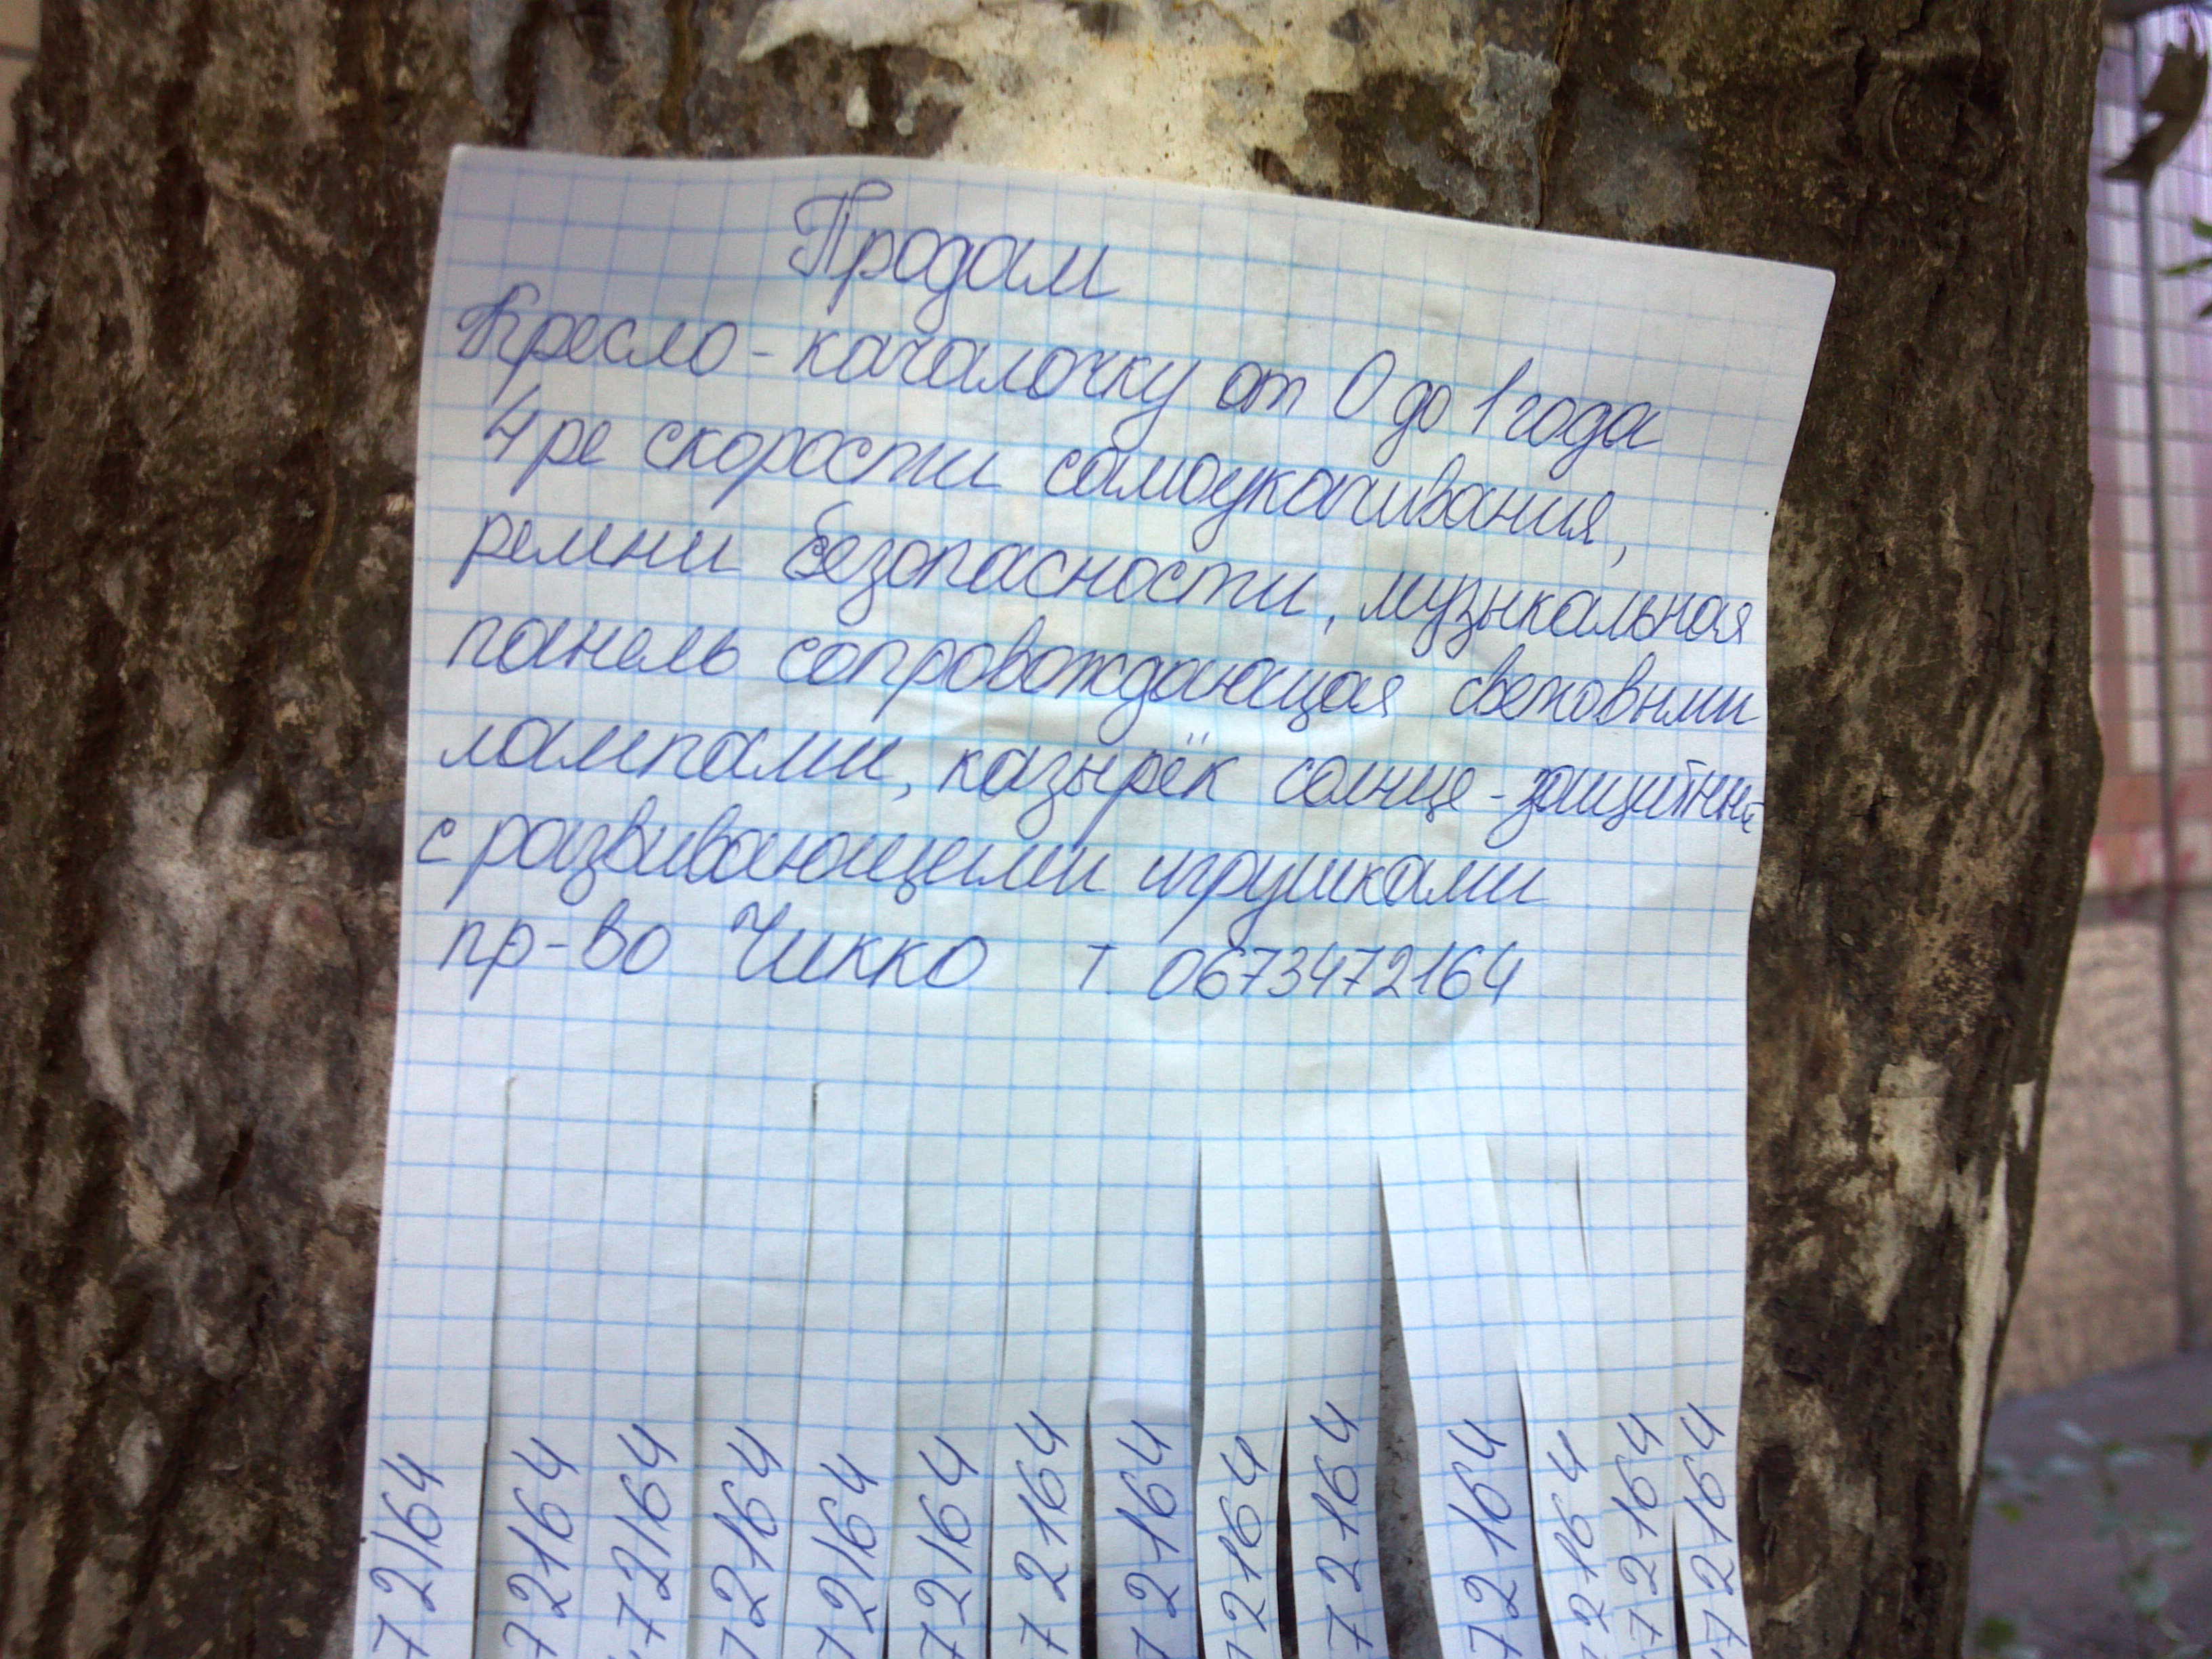 Продам
Кресло-качалочку от 0 до 1 года
4ре скорости самоукачивания,
ремни безопасности, музыкальная
панель сопровождающая световыми
лампами, казырёк солнце-защитны
с развивающими игрушками
пр-во Чикко т. 0673472164
72164
72164
72164
72164
72164
72164
72164
72164
72164
72164
72164
72164
72164
72164